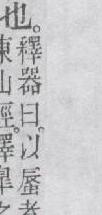 也。
釋器曰。以蜃者
東山經。嶧皐之